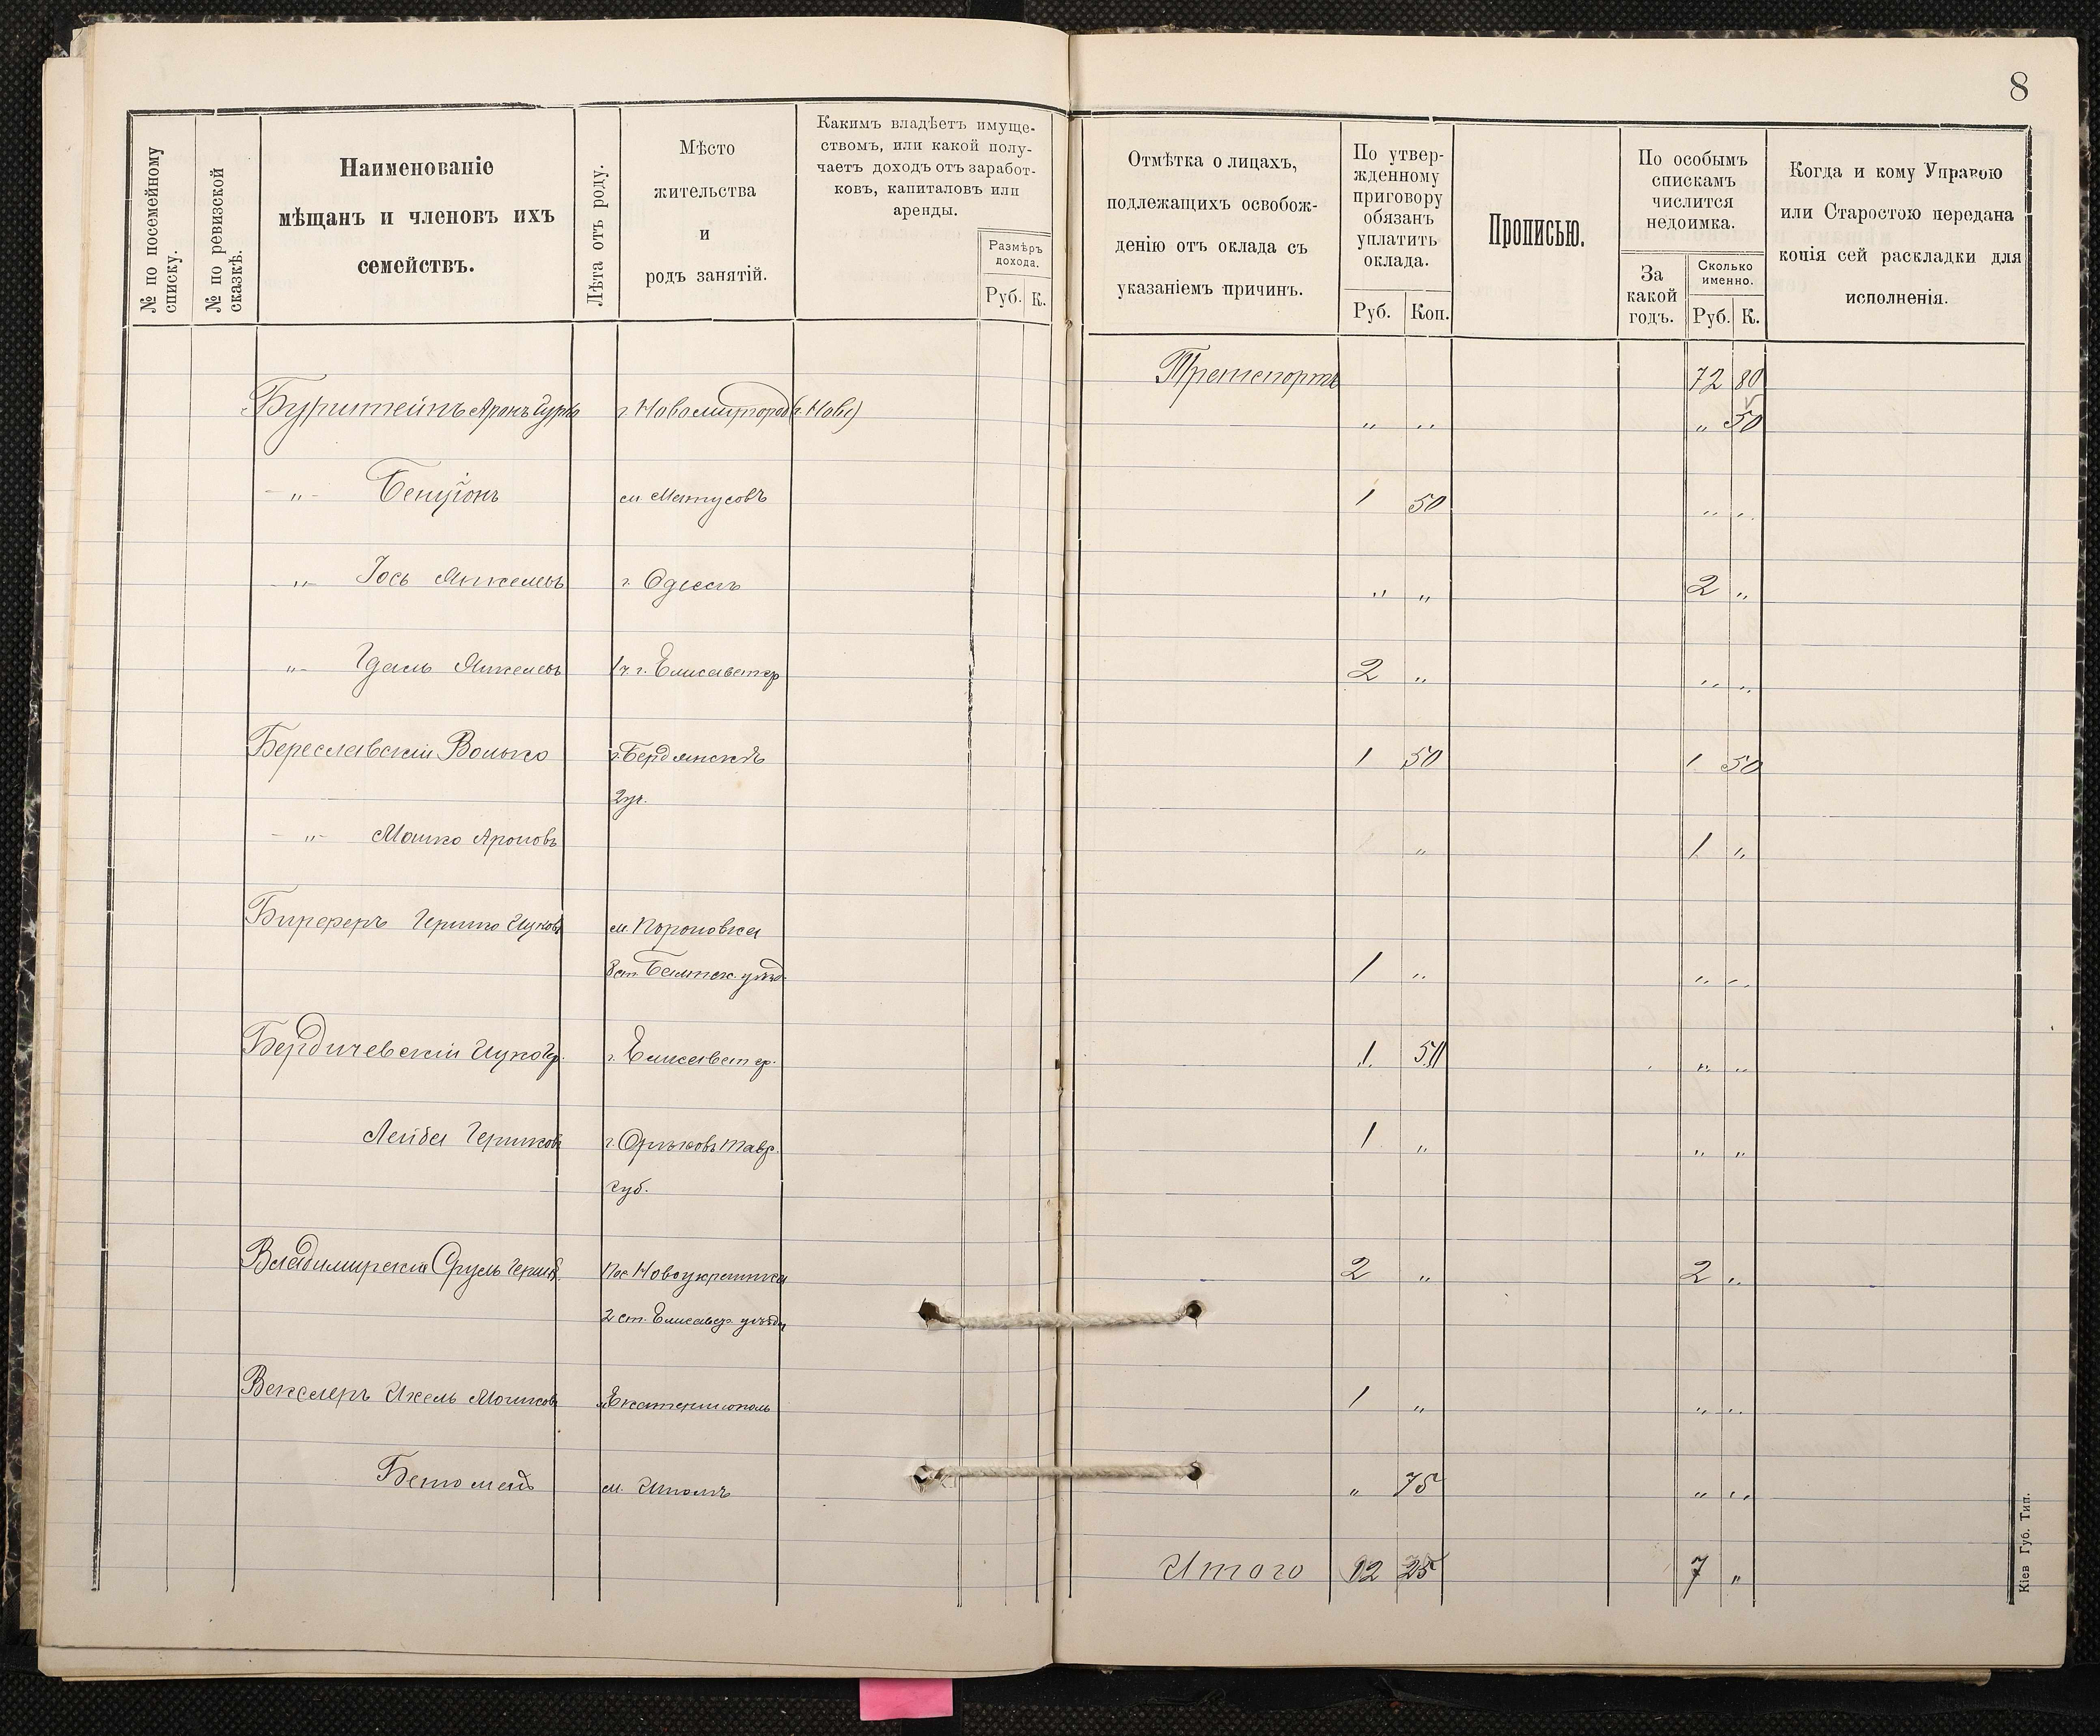 8
№ по посемейному списку.
№ по ревизской сказкѣ.
Наименованіе
мѣщанъ и членовъ ихъ
семействъ.
Лѣта отъ роду.
Мѣсто
жительства
и
родъ занятій.
Какимъ владѣетъ имуще-
ствомъ, или какой полу-
чаетъ доходъ отъ заработ-
ковъ, капиталовъ или
аренды.
Размѣръ
дохода.
Руб. К.
Отмѣтка о лицахъ,
подлежащихъ освобож-
денію отъ оклада съ
указаніемъ причинъ.
По утвер-
жденному
приговору
обязанъ
уплатить
оклада.
Руб. Коп.
Прописью.
По особымъ
спискамъ
числится
недоимка.
За
какой
годъ.
Сколько
именно.
Руб. К.
Когда и кому Управою
или Старостою передана
копія сей раскладки для
исполненія.
Транспортъ 72 80
Бурштейнъ Аронъ г. Новомиргород „ „ „ 50
„ Бенціонъ м Матусовъ 1 50 „ „
„ Іось Янкелевъ г. Одесса „ „ 2 „
„ Гдаль Янкелевъ 1 ч г. Елисаветгр 2 „ „ „
Береславскій Волько г. Бердянскъ 1 50 1 50
2 уч.
„ Мошко Ароновъ „ 1 „
Гершко Ицковъ м
8 ст. Балтск. уѣзд. 1 „ „ „
Бердичевскій Ицко Гер. г. Елисаветгр. 1 50 „ „
Лейба Гершковъ г. Орѣховъ Тавр. 1 „ „ „
губ.
Владимирскій Сруль Гершк. Пос Новоукраинка 2 „ 2 „
2 ст. Елисавгр. уѣзда
Векслеръ Икель Мошковъ м Екатеринополь 1 „ „ „
м. „ 75 „ „
Итого 12 25 7 „
Кіев Губ. Тип.